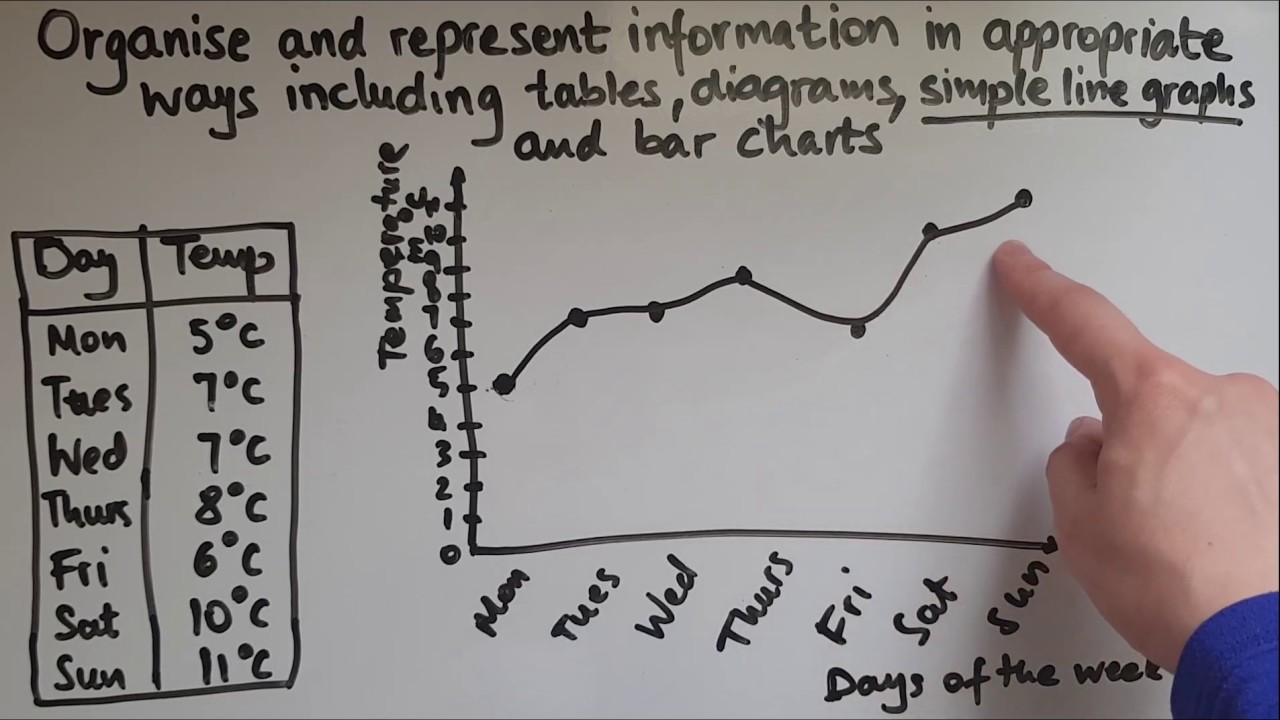 Organise and represent information in appropriate
ways including tables, diagrams, simple line graphs
and bar charts
Day Temp
Mon 5°C
Tues 7°C
Wed 7°C
Thurs 8°C
Fri 6°C
Sat 10°C
Sun 11°C
Temperature
9
8
7
6
5
4
3
2
1
0
Mon Tues Wed Thurs Fri Sat Sun
Days of the week